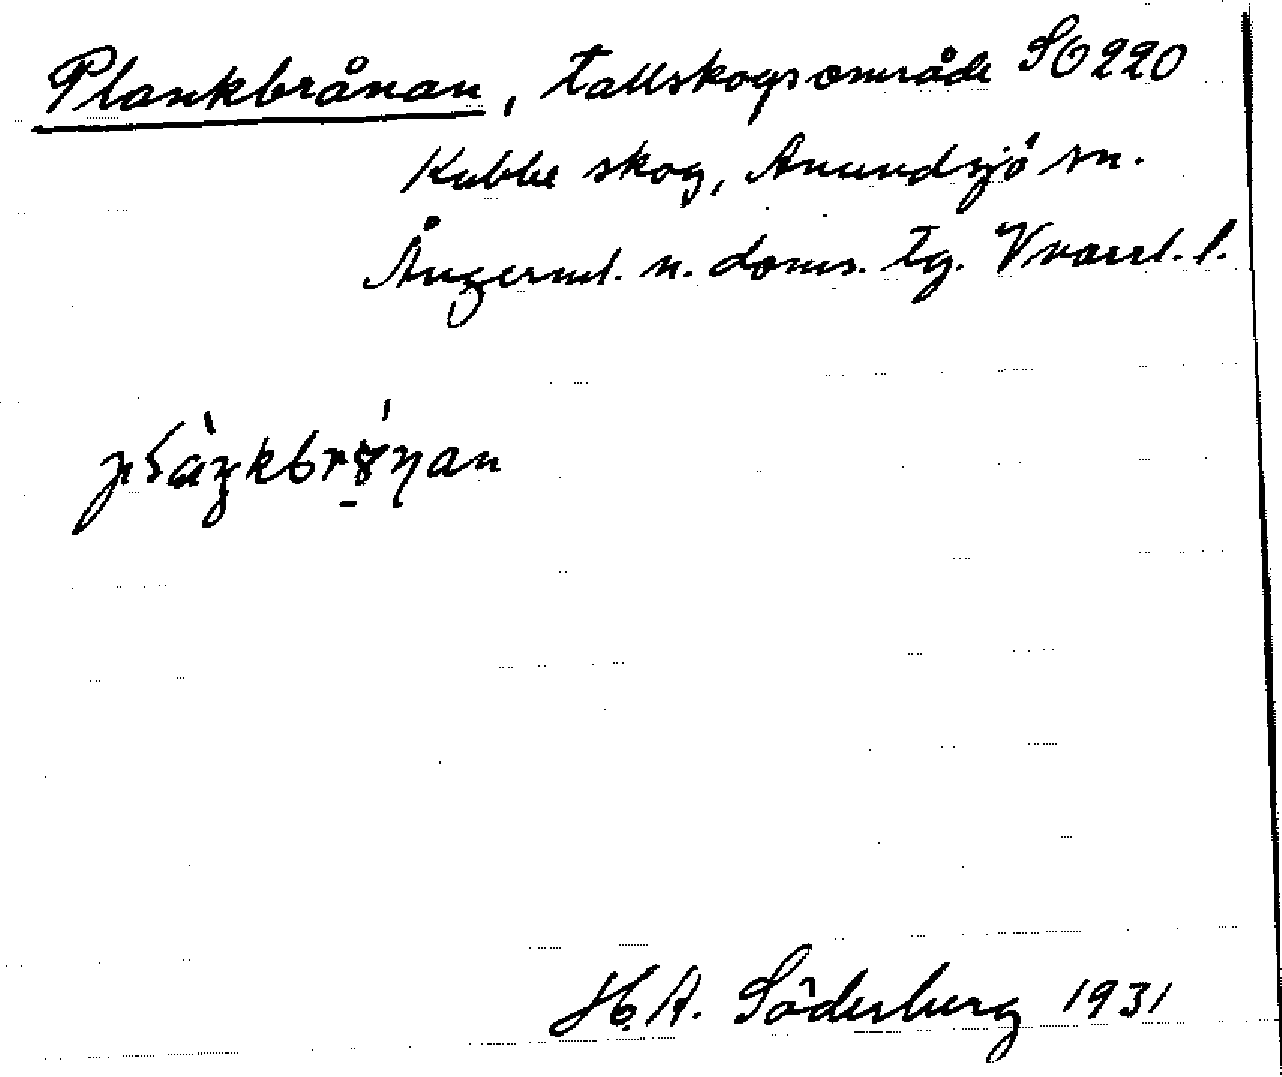 Plankbrånan, tallskogsområde SO220
Kubbe skog, Anundsjö sn.
Ångerml. n. doms. tg. Vnorrl. l.
H.A. Söderberg 1931